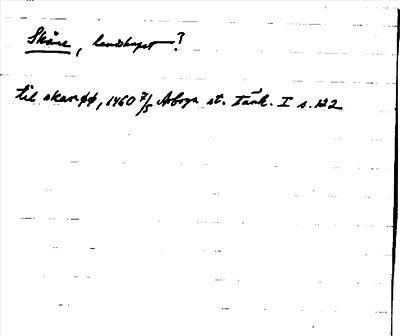 Skåne, landskapet?
til skanøø, 1460 7/5 Arboga st. tänk. I s. 122